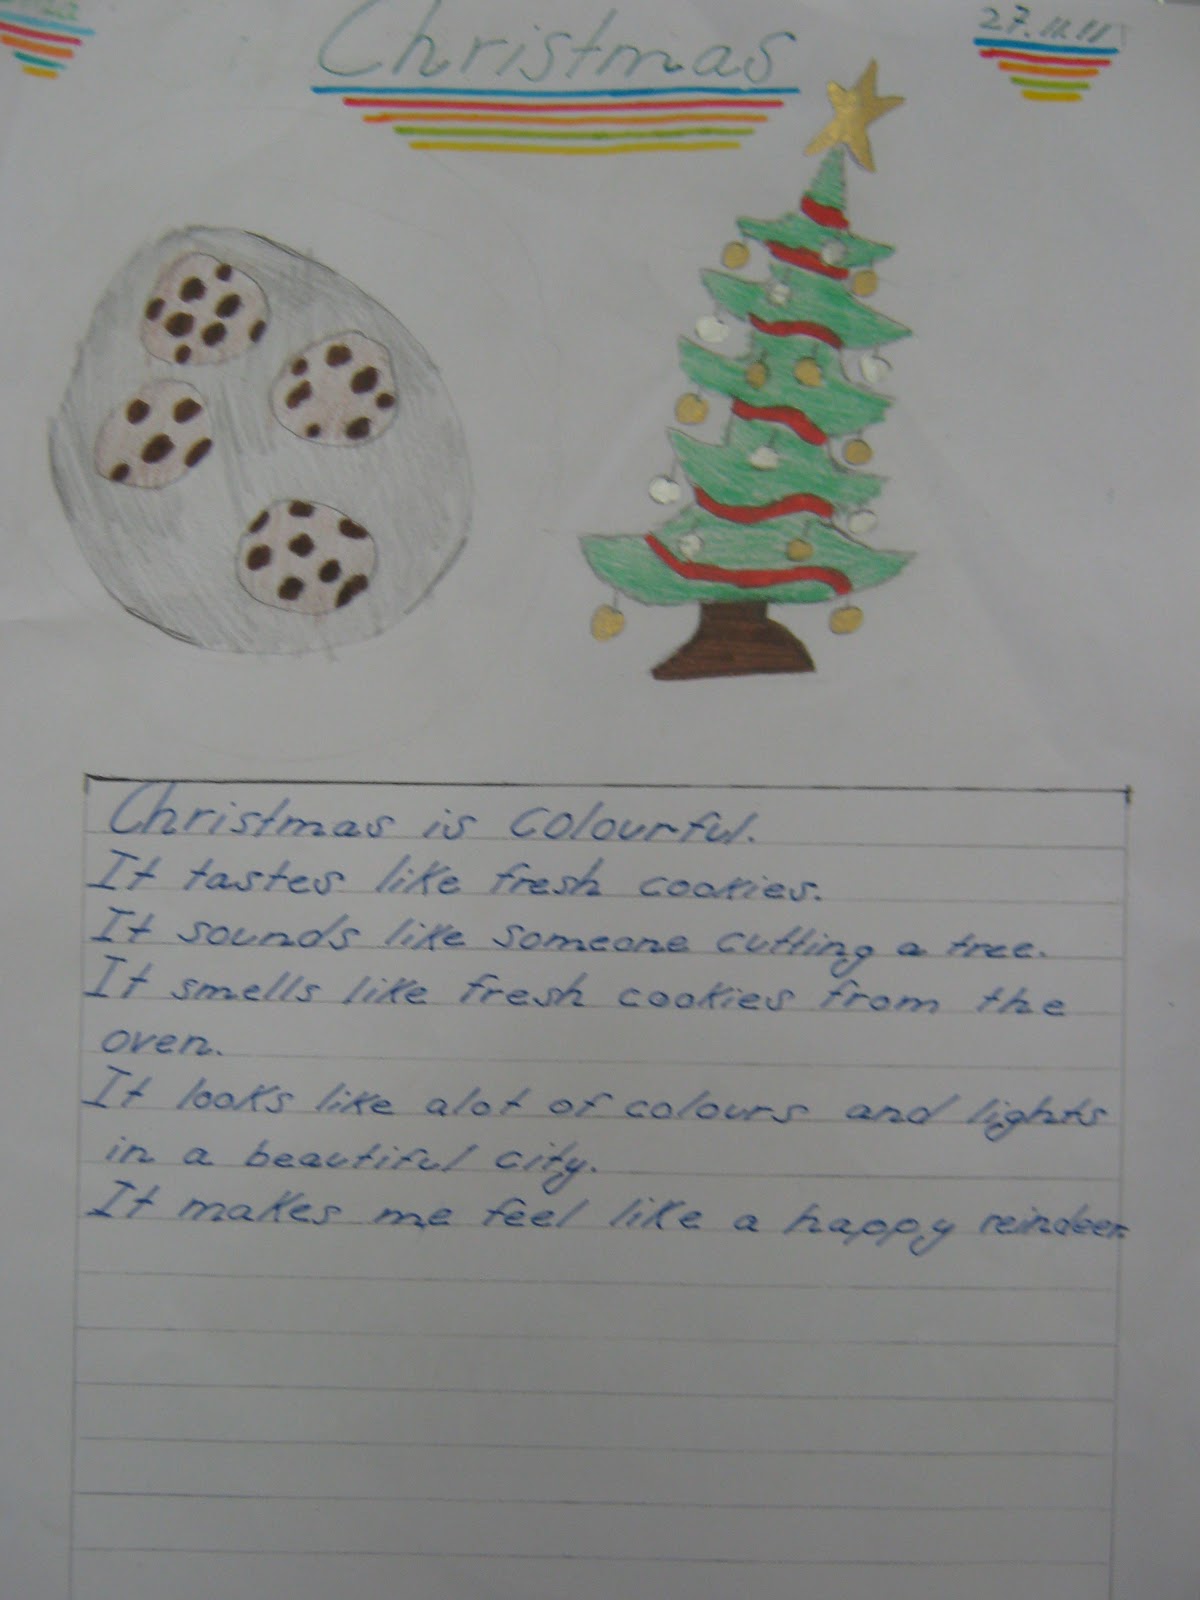 Christmas
27.11.11
Christmas is colourful.
It tastes like fresh cookies.
It sounds like someone cutting a tree.
It smells like fresh cookies from the
oven.
It looks like alot of colours and lights
in a beautiful city.
It makes me feel like a happy reindeer.